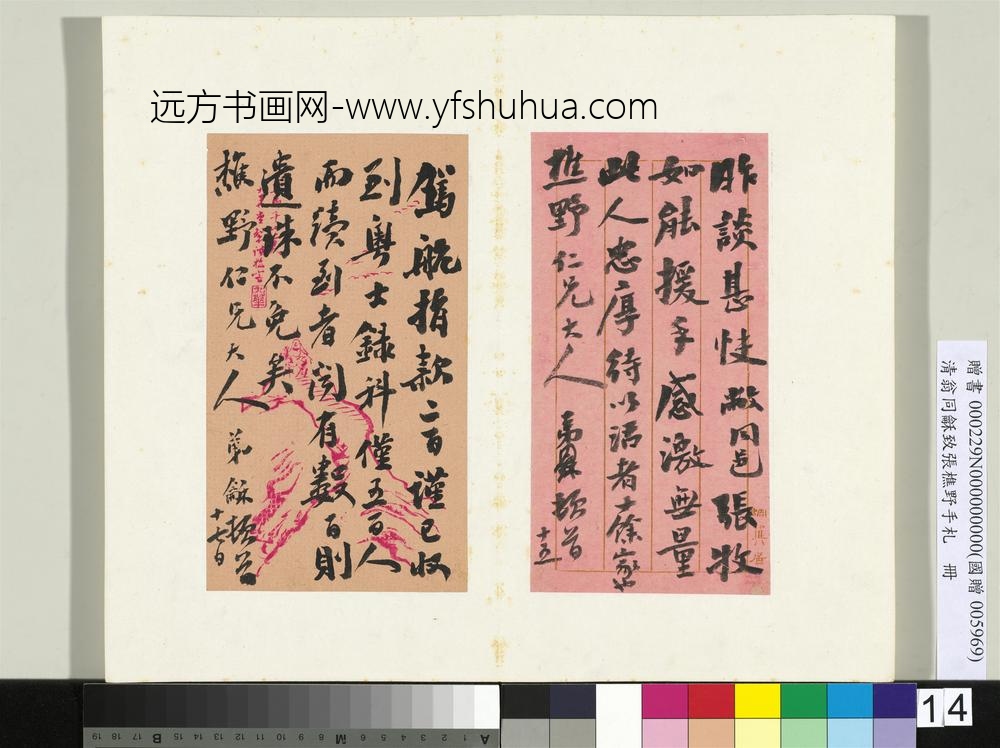 远方书画网-www.yfshuhua.com
昨談甚快敝同邑張牧
如能援手感激無量
此人忠厚待以活者十餘家也
樵野仁兄大人 弟龢頓首
十五
鴐航捐款二百謹已收
到粵士錄科僅五百人
而續到者尚有數百則
遺珠不免矣
樵野仁兄大人 弟龢頓首
十七日
贈書 000229N000000000(國贈 005969)
清翁同龢致張樵野手札 冊
14
19 18 17 16 15 B M A